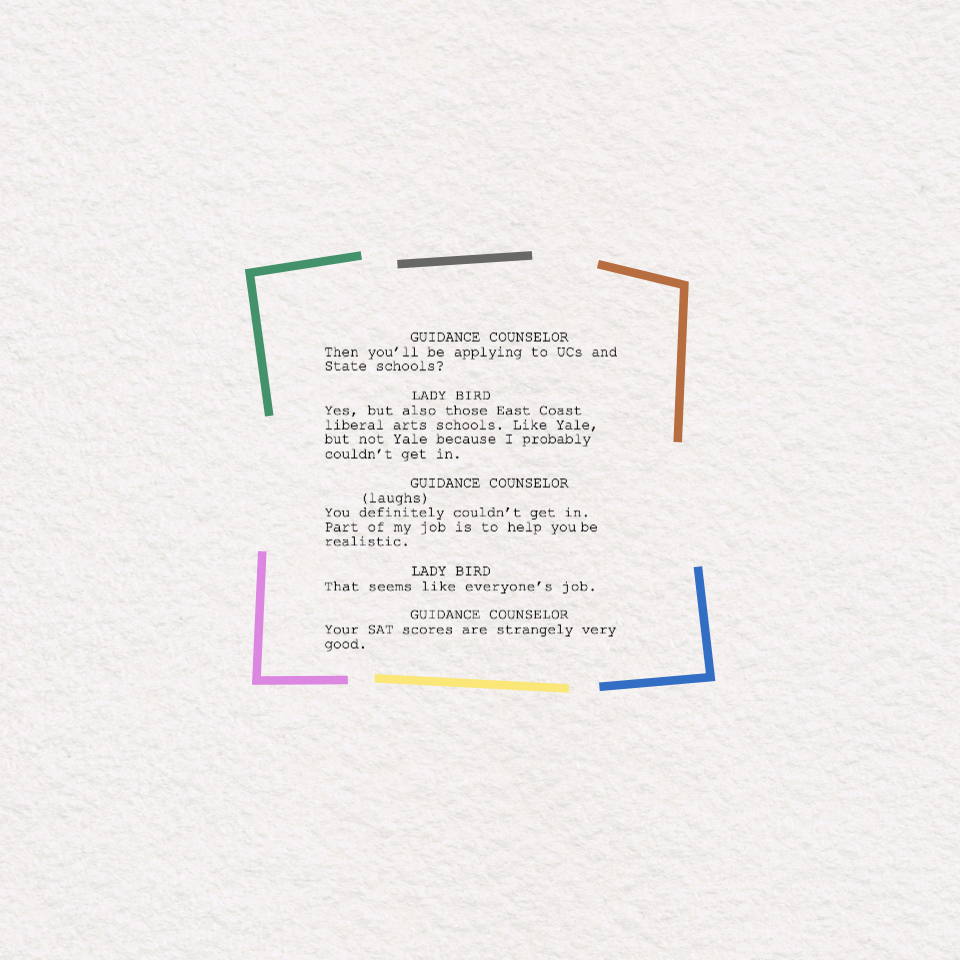 GUIDANCE COUNSELOR
Then you'll be applying to UCs and
State schools?
LADY BIRD
Yes, but also those East Coast
liberal arts schools. Like Yale,
but not Yale because I probably
couldn't get in.
GUIDANCE COUNSELOR
(laughs)
You definitely couldn't get in.
Part of my job is to help you be
realistic.
LADY BIRD
That seems like everyone's job.
GUIDANCE COUNSELOR
Your SAT scores are strangely very
good.